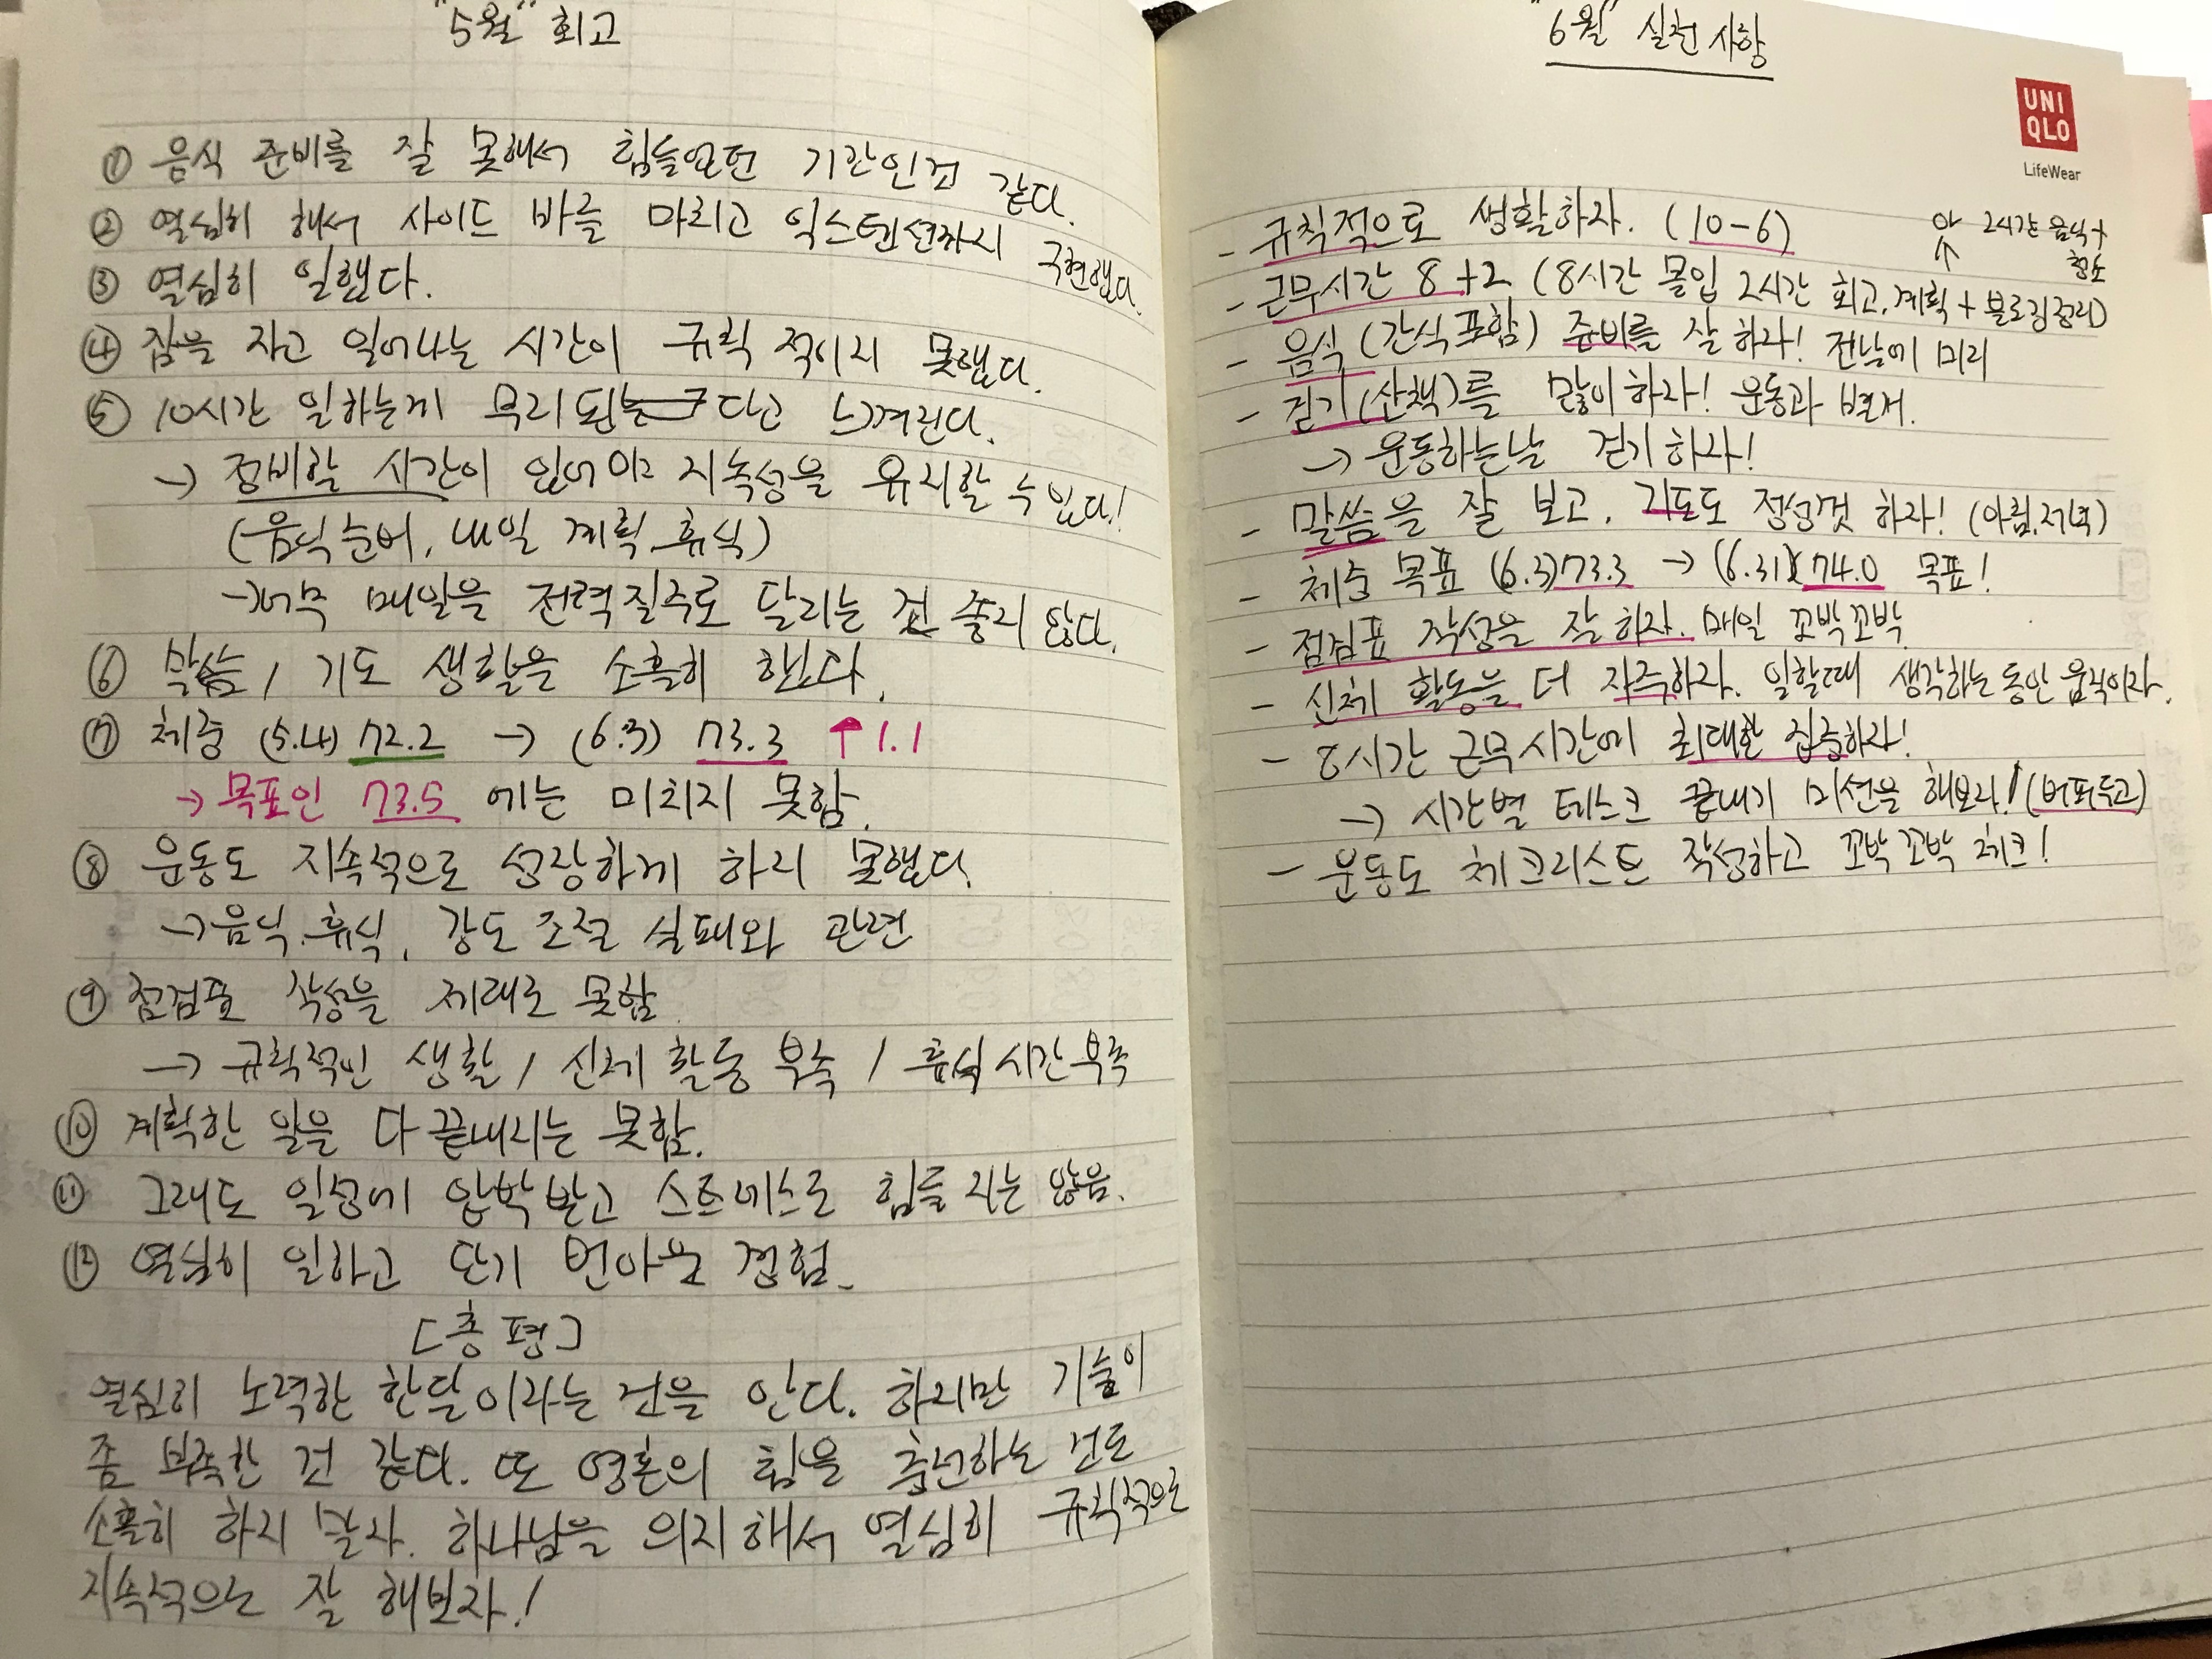 "5월" 회고
① 음식 준비를 잘 못해서 힘들었던 기간인것 같다.
② 열심히 해서 사이드 바를 마치고 익스텐션까지 구현했다.
③ 열심히 일했다.
④ 잠을 자고 일어나는 시간이 규칙적이지 못했다.
⑤ 10시간 일하는게 무리된다고 느껴진다.
→ 정비할 시간이 있어야 지속성을 유지할 수 있다!
(음식준비, 내일 계획, 휴식)
→ 너무 매일을 전력질주로 달리는 건 좋지 않다.
⑥ 말씀 / 기도 생활을 소홀히 했다.
⑦ 체중 (5.4) 72.2 → (6.3) 73.3 ↑1.1
→ 목표인 73.5 에는 미치지 못함.
⑧ 운동도 지속적으로 성장하게 하지 못했다.
→ 음식, 휴식, 강도 조절 실패와 관련
⑨ 점검표 작성을 제대로 못함
→ 규칙적인 생활 / 신체 활동 부족 / 휴식 시간 부족
⑩ 계획한 일을 다 끝내지는 못함.
⑪ 그래도 일정에 압박받고 스트레스로 힘들지는 않음.
⑫ 열심히 일하고 단기 번아웃 경험.
[총평]
열심히 노력한 한달이라는 건을 안다. 하지만 기술이
좀 부족한 건 같다. 또 영혼의 힘을 충전하는 건도
소홀히 하지 말자. 하나님을 의지해서 열심히 규칙적으로
지속적으로 잘 해보자!
"6월" 실천사항
UNI
QLO
LifeWear
- 규칙적으로 생활하자. (10-6)
2시간 음식+
청소
- 근무시간 8+2 (8시간 몰입 2시간 회고, 계획 + 블로깅정리)
- 음식(간식포함) 준비를 잘 하자! 전날에 미리
- 걷기(산책)를 많이하자! 운동과 별개.
→ 운동하는날 걷기하자!
- 말씀을 잘 보고, 기도도 정성껏 하자! (아침, 저녁)
- 체중 목표 (6.3)73.3 → (6.31)74.0 목표!
- 점검표 작성을 잘하자. 매일 꼬박꼬박
- 신체 활동을 더 자주하자. 일할때 생각하는 동안 움직이자.
- 8시간 근무시간에 최대한 집중하자!
→ 시간별 테스크 끝내기 미션을 해보자! (버퍼두고)
- 운동도 체크리스트 작성하고 꼬박꼬박 체크!